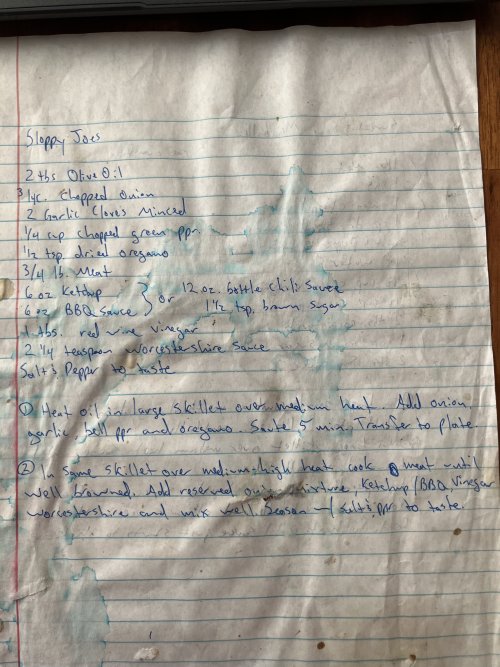 Sloppy Joes
2 tbs Olive Oil
3/4 c. Chopped Onion
2 Garlic Cloves Minced
1/4 cup chopped green ppr.
1/2 tsp dried oregano
3/4 lb. Meat
6 oz Ketchup } or 12 oz. bottle Chili Sauce
6 oz BBQ Sauce } 1 1/2 tsp. brown sugar
1 tbs. red wine vinegar
2 1/4 teaspoon Worcestershire Sauce
Salt & Pepper to taste
① Heat oil in large skillet over medium heat. Add onion,
garlic, bell ppr and oregano. Saute 5 min. Transfer to plate.
② In same skillet over medium-high heat cook meat until
well browned. Add reserved onion mixture. Ketchup/BBQ, Vinegar
Worcestershire and mix well. Season w/ salt & ppr to taste.